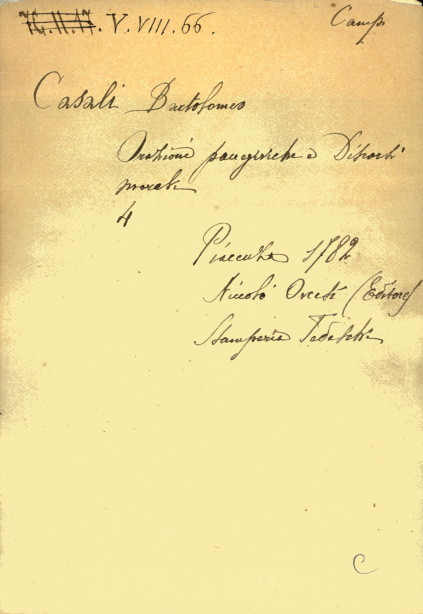 76.11.17. V. VIII. 66.
Camp
Casali Bartolomeo
Orazioni panegiriche e Discorsi
morali
4
Piacenza 1782
Niccolò Orcesi (Editore)
Stamperia Tedeschi
C